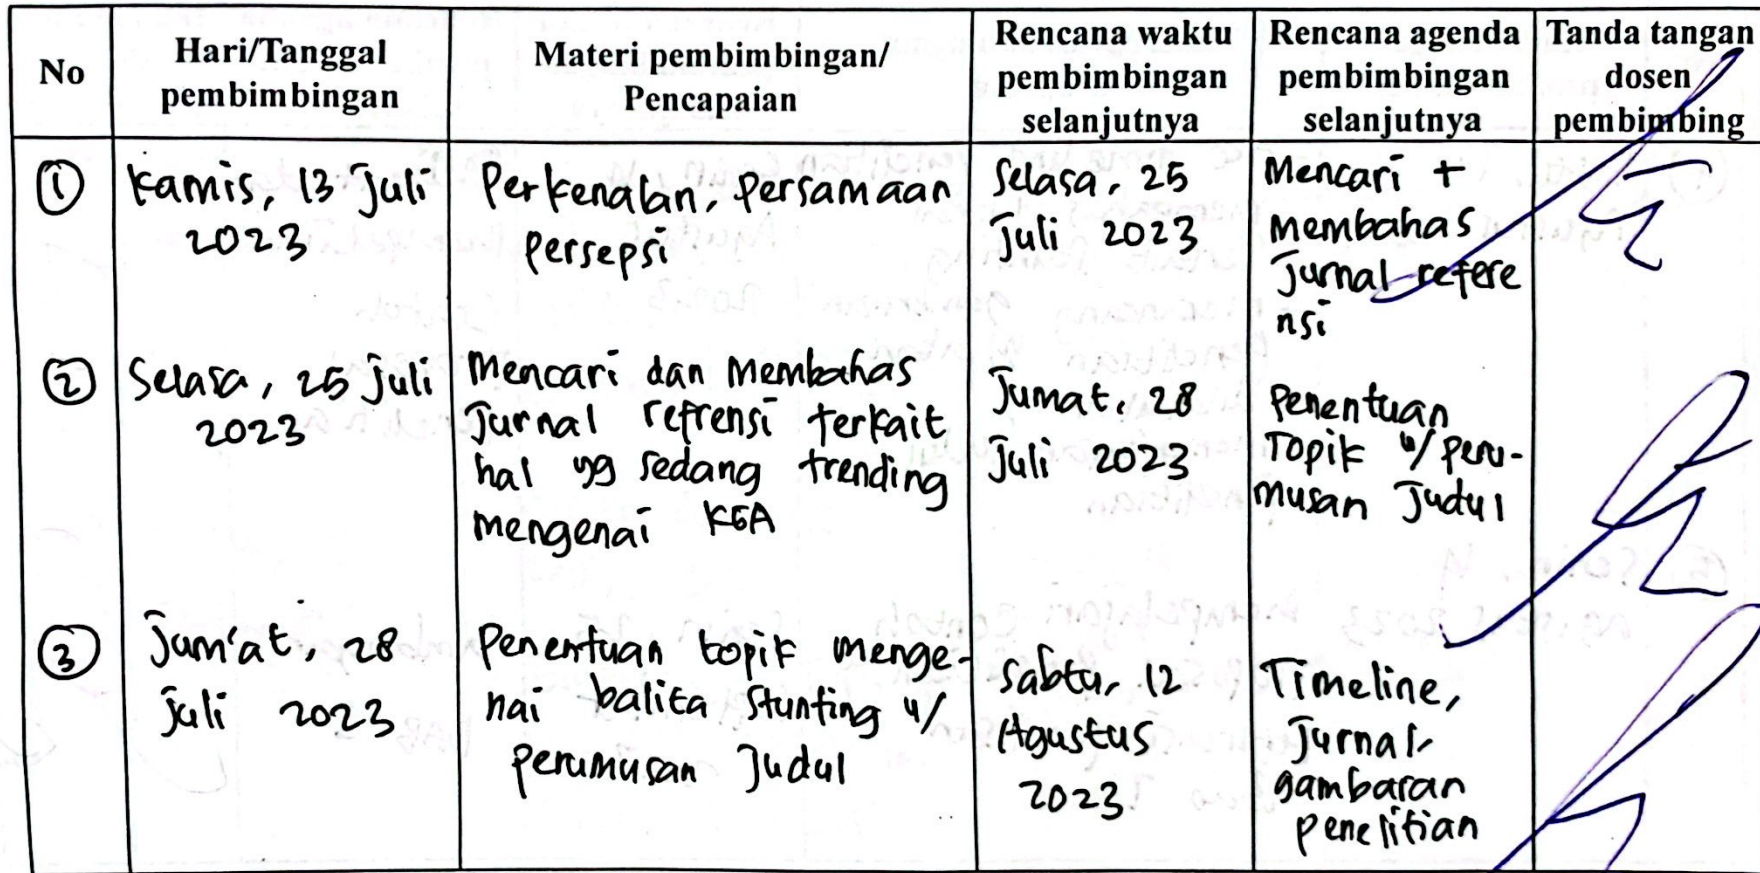 No
Hari/Tanggal
pembimbingan
Materi pembimbingan/
Pencapaian
Rencana waktu
pembimbingan
selanjutnya
Rencana agenda
pembimbingan
selanjutnya
Tanda tangan
dosen
pembimbing
1
Kamis, 13 Juli
2023
Perkenalan, Persamaan
Persepsi
Selasa, 25
Juli 2023
Mencari +
Membahas
Jurnal refere
nsi
2
Selasa, 25 Juli
2023
Mencari dan Membahas
Jurnal refrensi terkait
hal yg sedang trending
mengenai KGA
Jumat, 28
Juli 2023
Penentuan
Topik u/ peru-
musan Judul
3
Jum'at, 28
Juli 2023
Penentuan topik menge-
nai balita Stunting u/
perumusan Judul
Sabtu, 12
Agustus
2023
Timeline,
Jurnal,
gambaran
penelitian